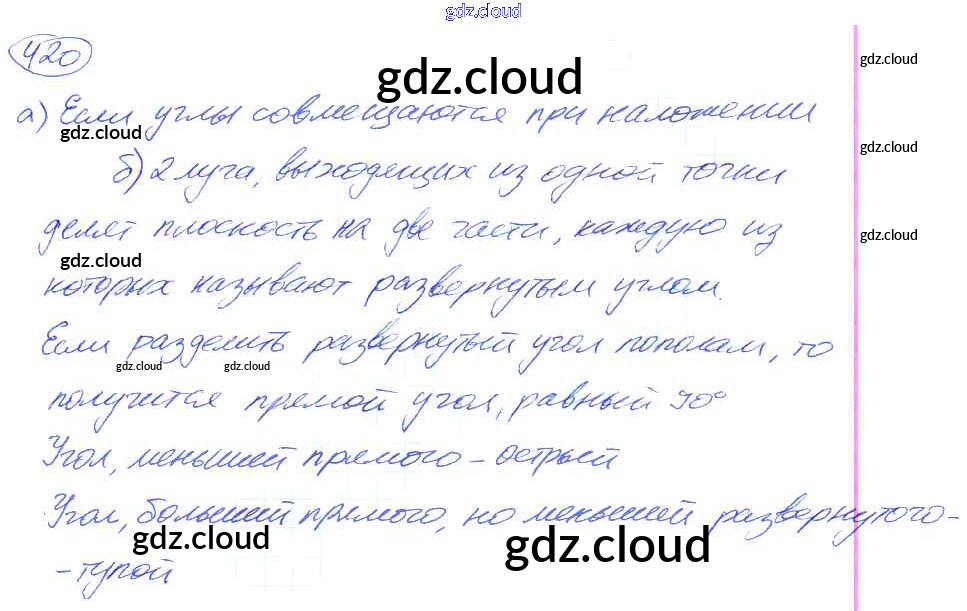 gdz.cloud
420
gdz.cloud
gdz.cloud
а) Если углы совмещаются при наложении
gdz.cloud
gdz.cloud
б) 2 луча, выходящих из одной точки
делят плоскость на две части, каждую из
gdz.cloud
gdz.cloud
которых называют развернутым углом.
Если разделить развернутый угол пополам, то
gdz.cloud gdz.cloud
получится прямой угол, равный 90°
Угол, меньший прямого - острый
Угол, больший прямого, но меньший развернутого -
gdz.cloud gdz.cloud
- тупой